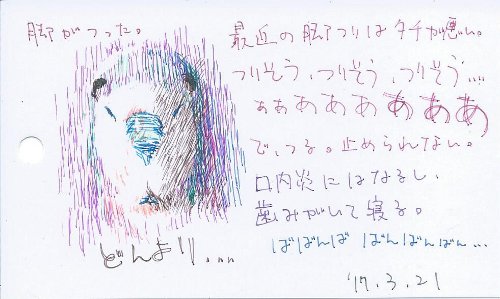 脚がつった。
最近の脚つりはタチが悪い。
つりそう、つりそう、つりそう…
ぁぁあああああああ
で、つる。止められない。
口内炎にはなるし、
歯みがいて寝る。
ばばんば ばんばんばん…
どんより….
'17.3.21